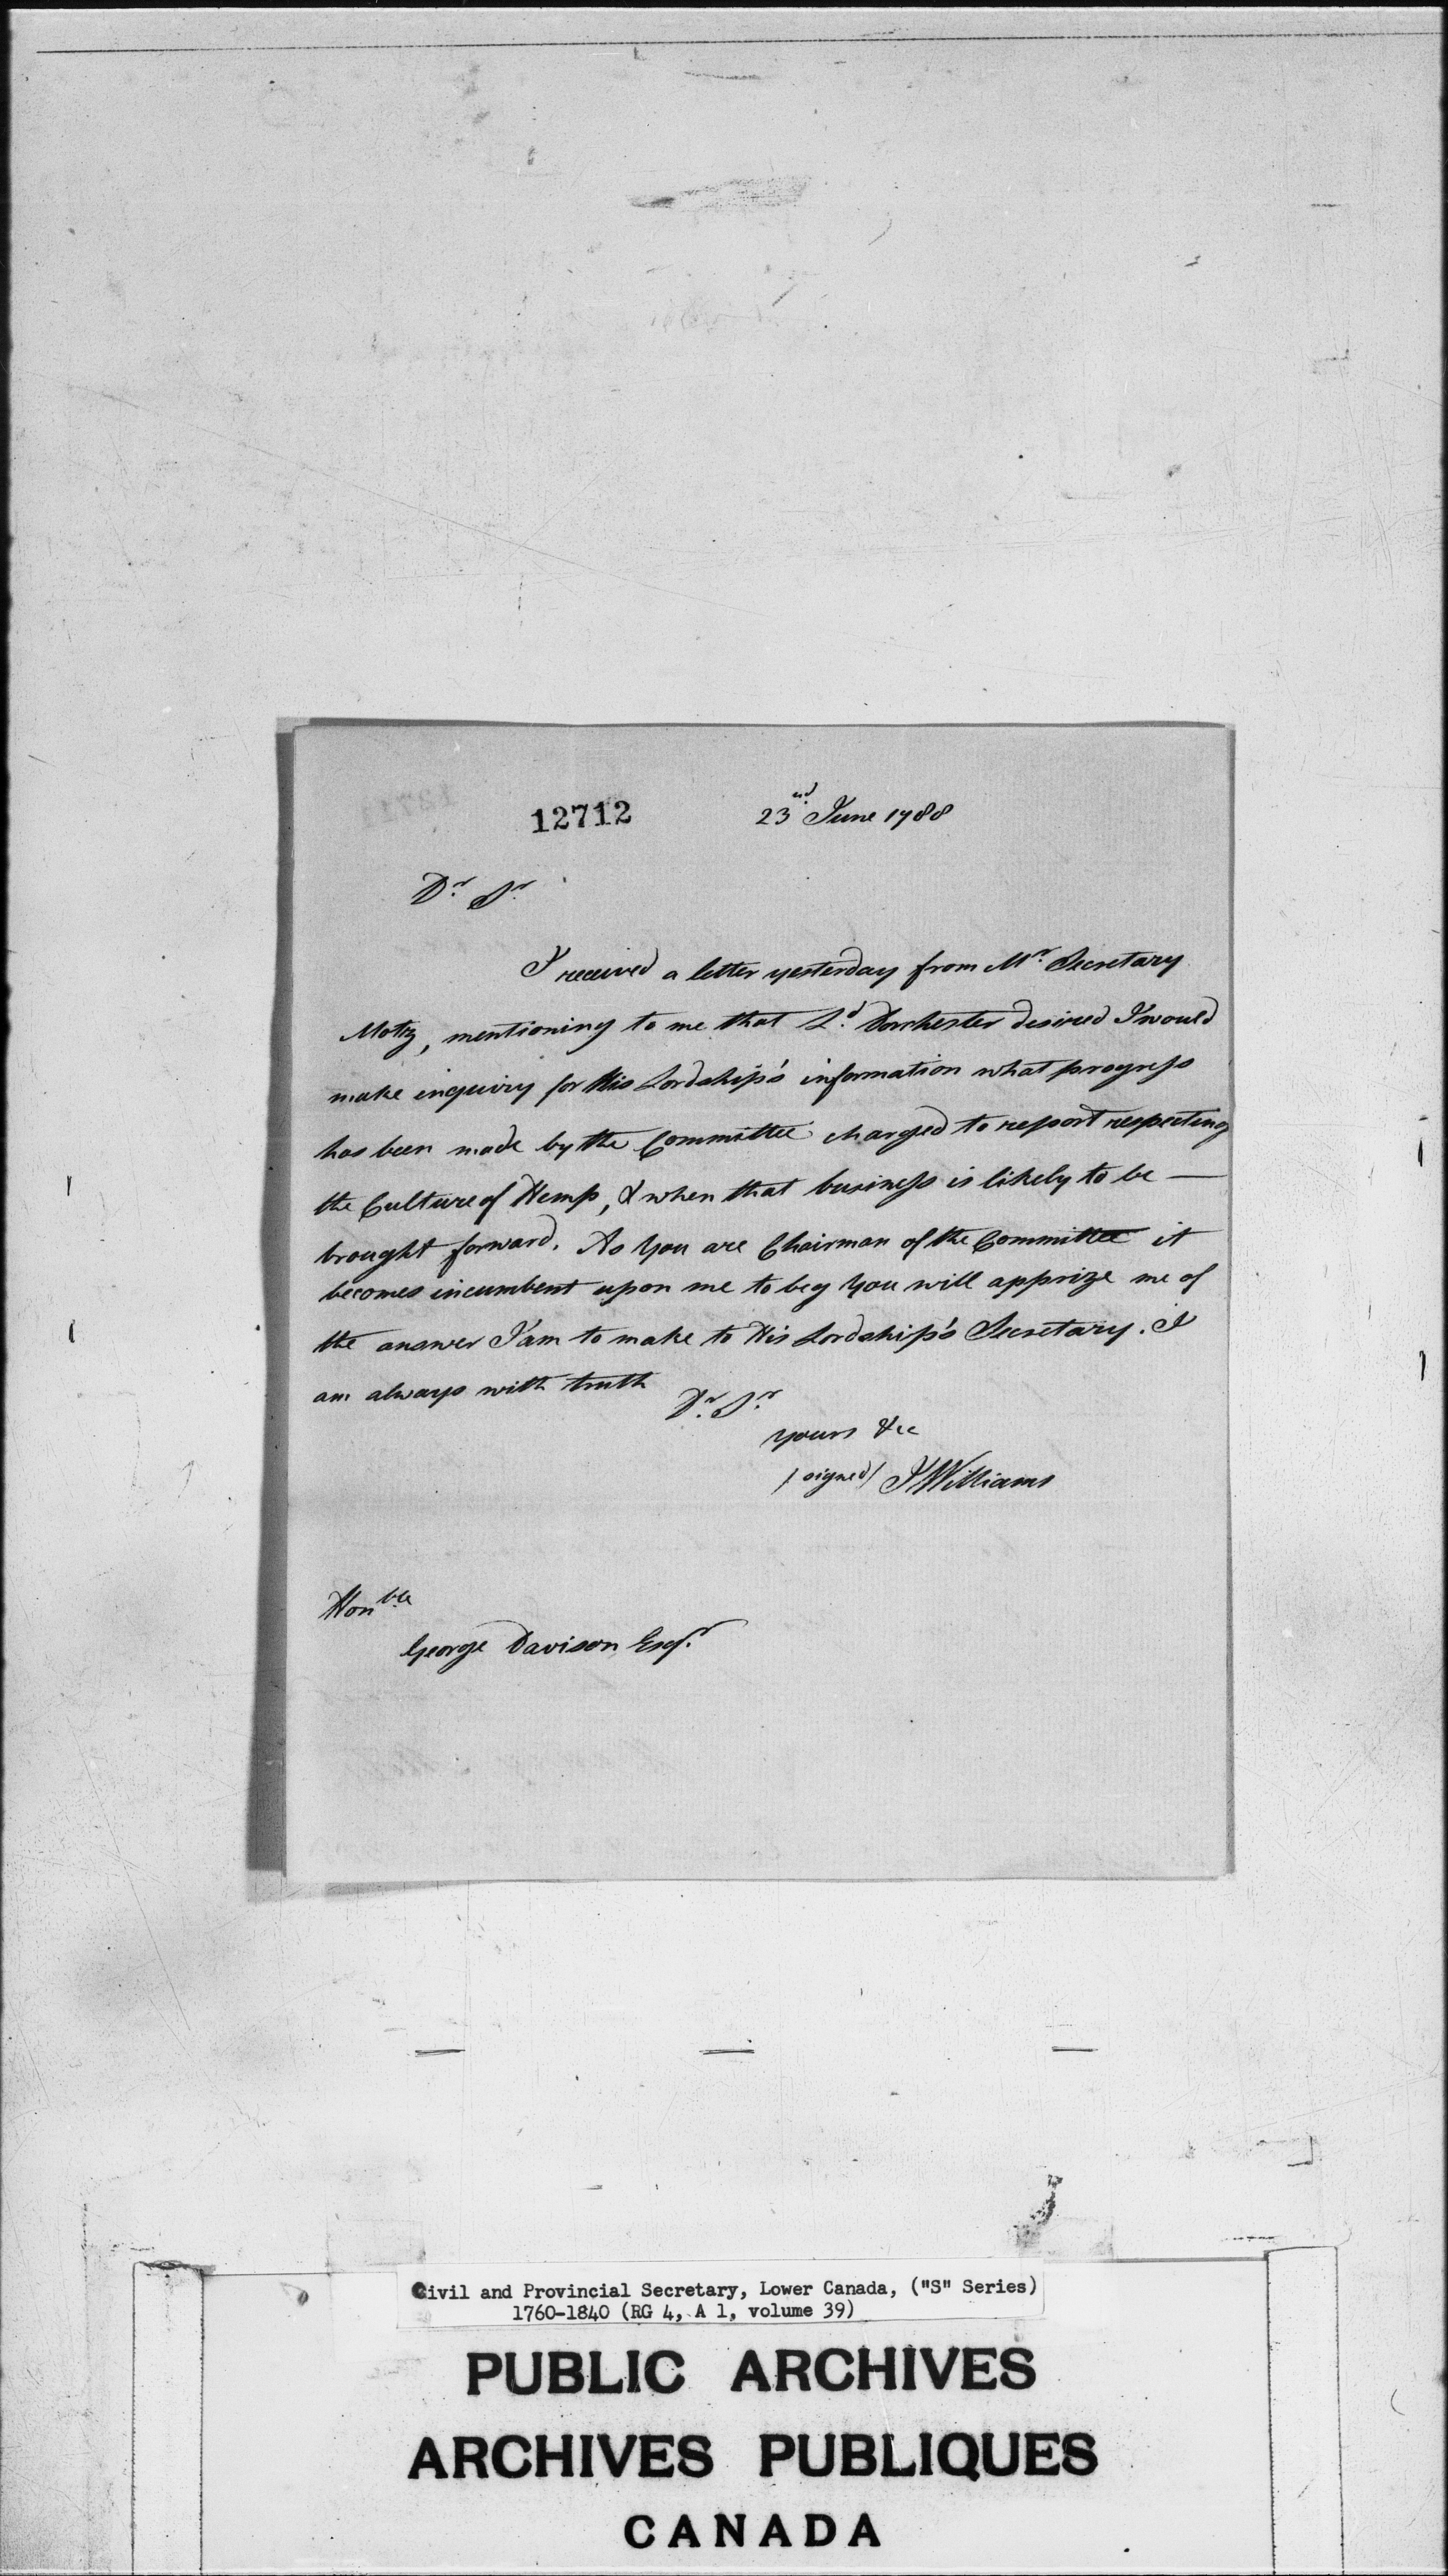 12712
23rd. June 1788
Dr. Sr.
I received a letter yesterday from Mr. Secretary
Motz, mentioning to me that Ld. Dorchester desired I would
make inquiry for His Lordship's information what progress
has been made by the Committee charged to report respecting
the Culture of Hemp, & when that business is likely to be —
brought forward. As You are Chairman of the Committee it
becomes incumbent upon me to beg You will apprize me of
the answer I am to make to His Lordship's Secretary. I
am always with truth
Dr. Sr.
Yours &c
/signed/ J Williams
Honble
George Davison Esqr.
Civil and Provincial Secretary, Lower Canada, ("S" Series)
1760-1840 (RG 4, A 1, volume 39)
PUBLIC ARCHIVES
ARCHIVES PUBLIQUES
CANADA